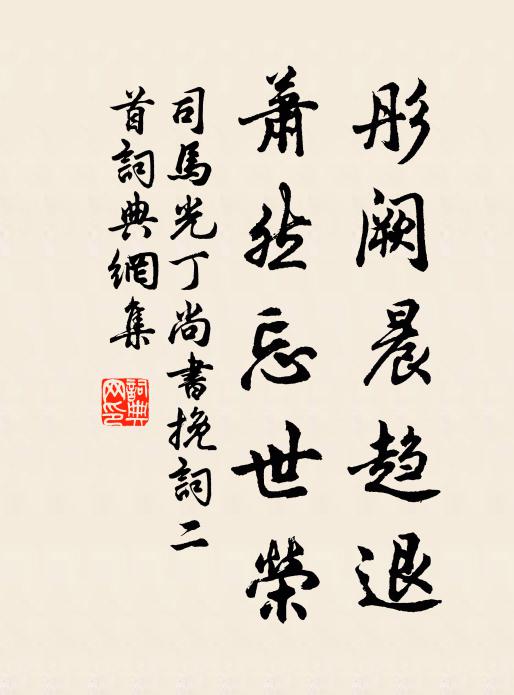 彤阙晨趋退
蕭然忘世榮
司馬光丁尚書挽詞二
首詞典網集
詞典網印